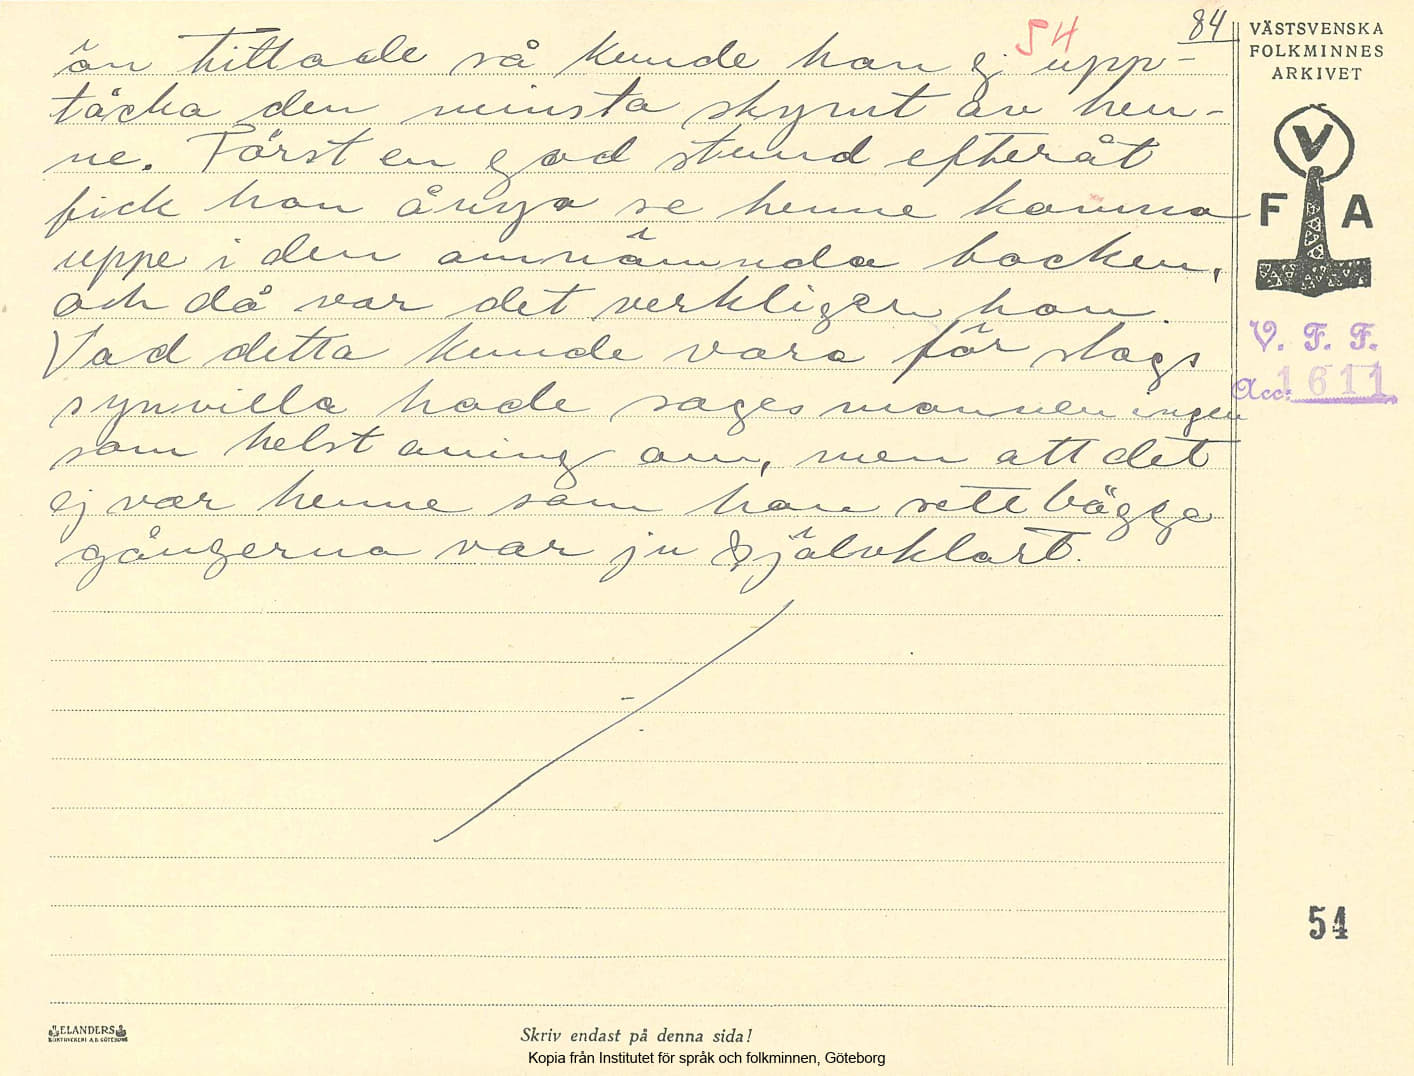 84
54
än tittade så kunde han ej upp-
täcka den minsta skymt av hen-
ne. Först en god stund efteråt
fick han ånyo se henne komma
uppe i den omnämnda backen,
och då var det verkligen hon.
Vad detta kunde vara för slags
synvilla hade sagesmannen ingen
som helst aning om, men att det
ej var henne som han sett bägge
gångerna var ju självklart.
VÄSTSVENSKA
FOLKMINNES
ARKIVET
V
F A
V. F. F.
Acc: 1611
54
ELANDERS
BOKTRYCKERI A.B. GÖTEBORG
Skriv endast på denna sida!
Kopia från Institutet för språk och folkminnen, Göteborg